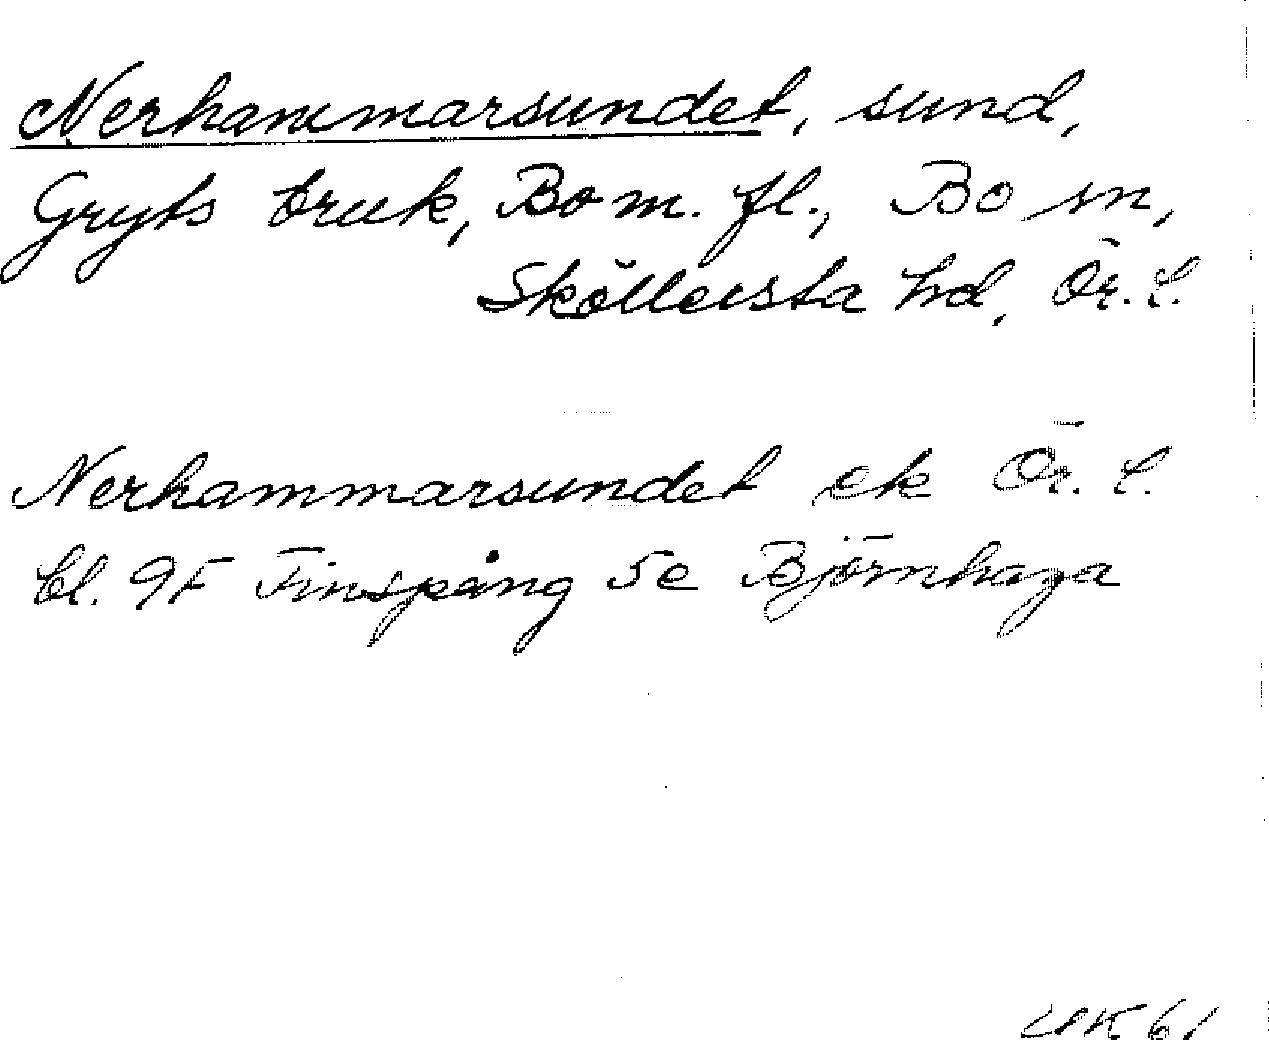 Nerhammarsundet, sund,
Gryts bruk, Bo m. fl., Bo sn,
Sköllersta hd, Ör. l.
Nerhammarsundet ek Ör. l.
bl. 9F Finspång 5e Björnhaga
61